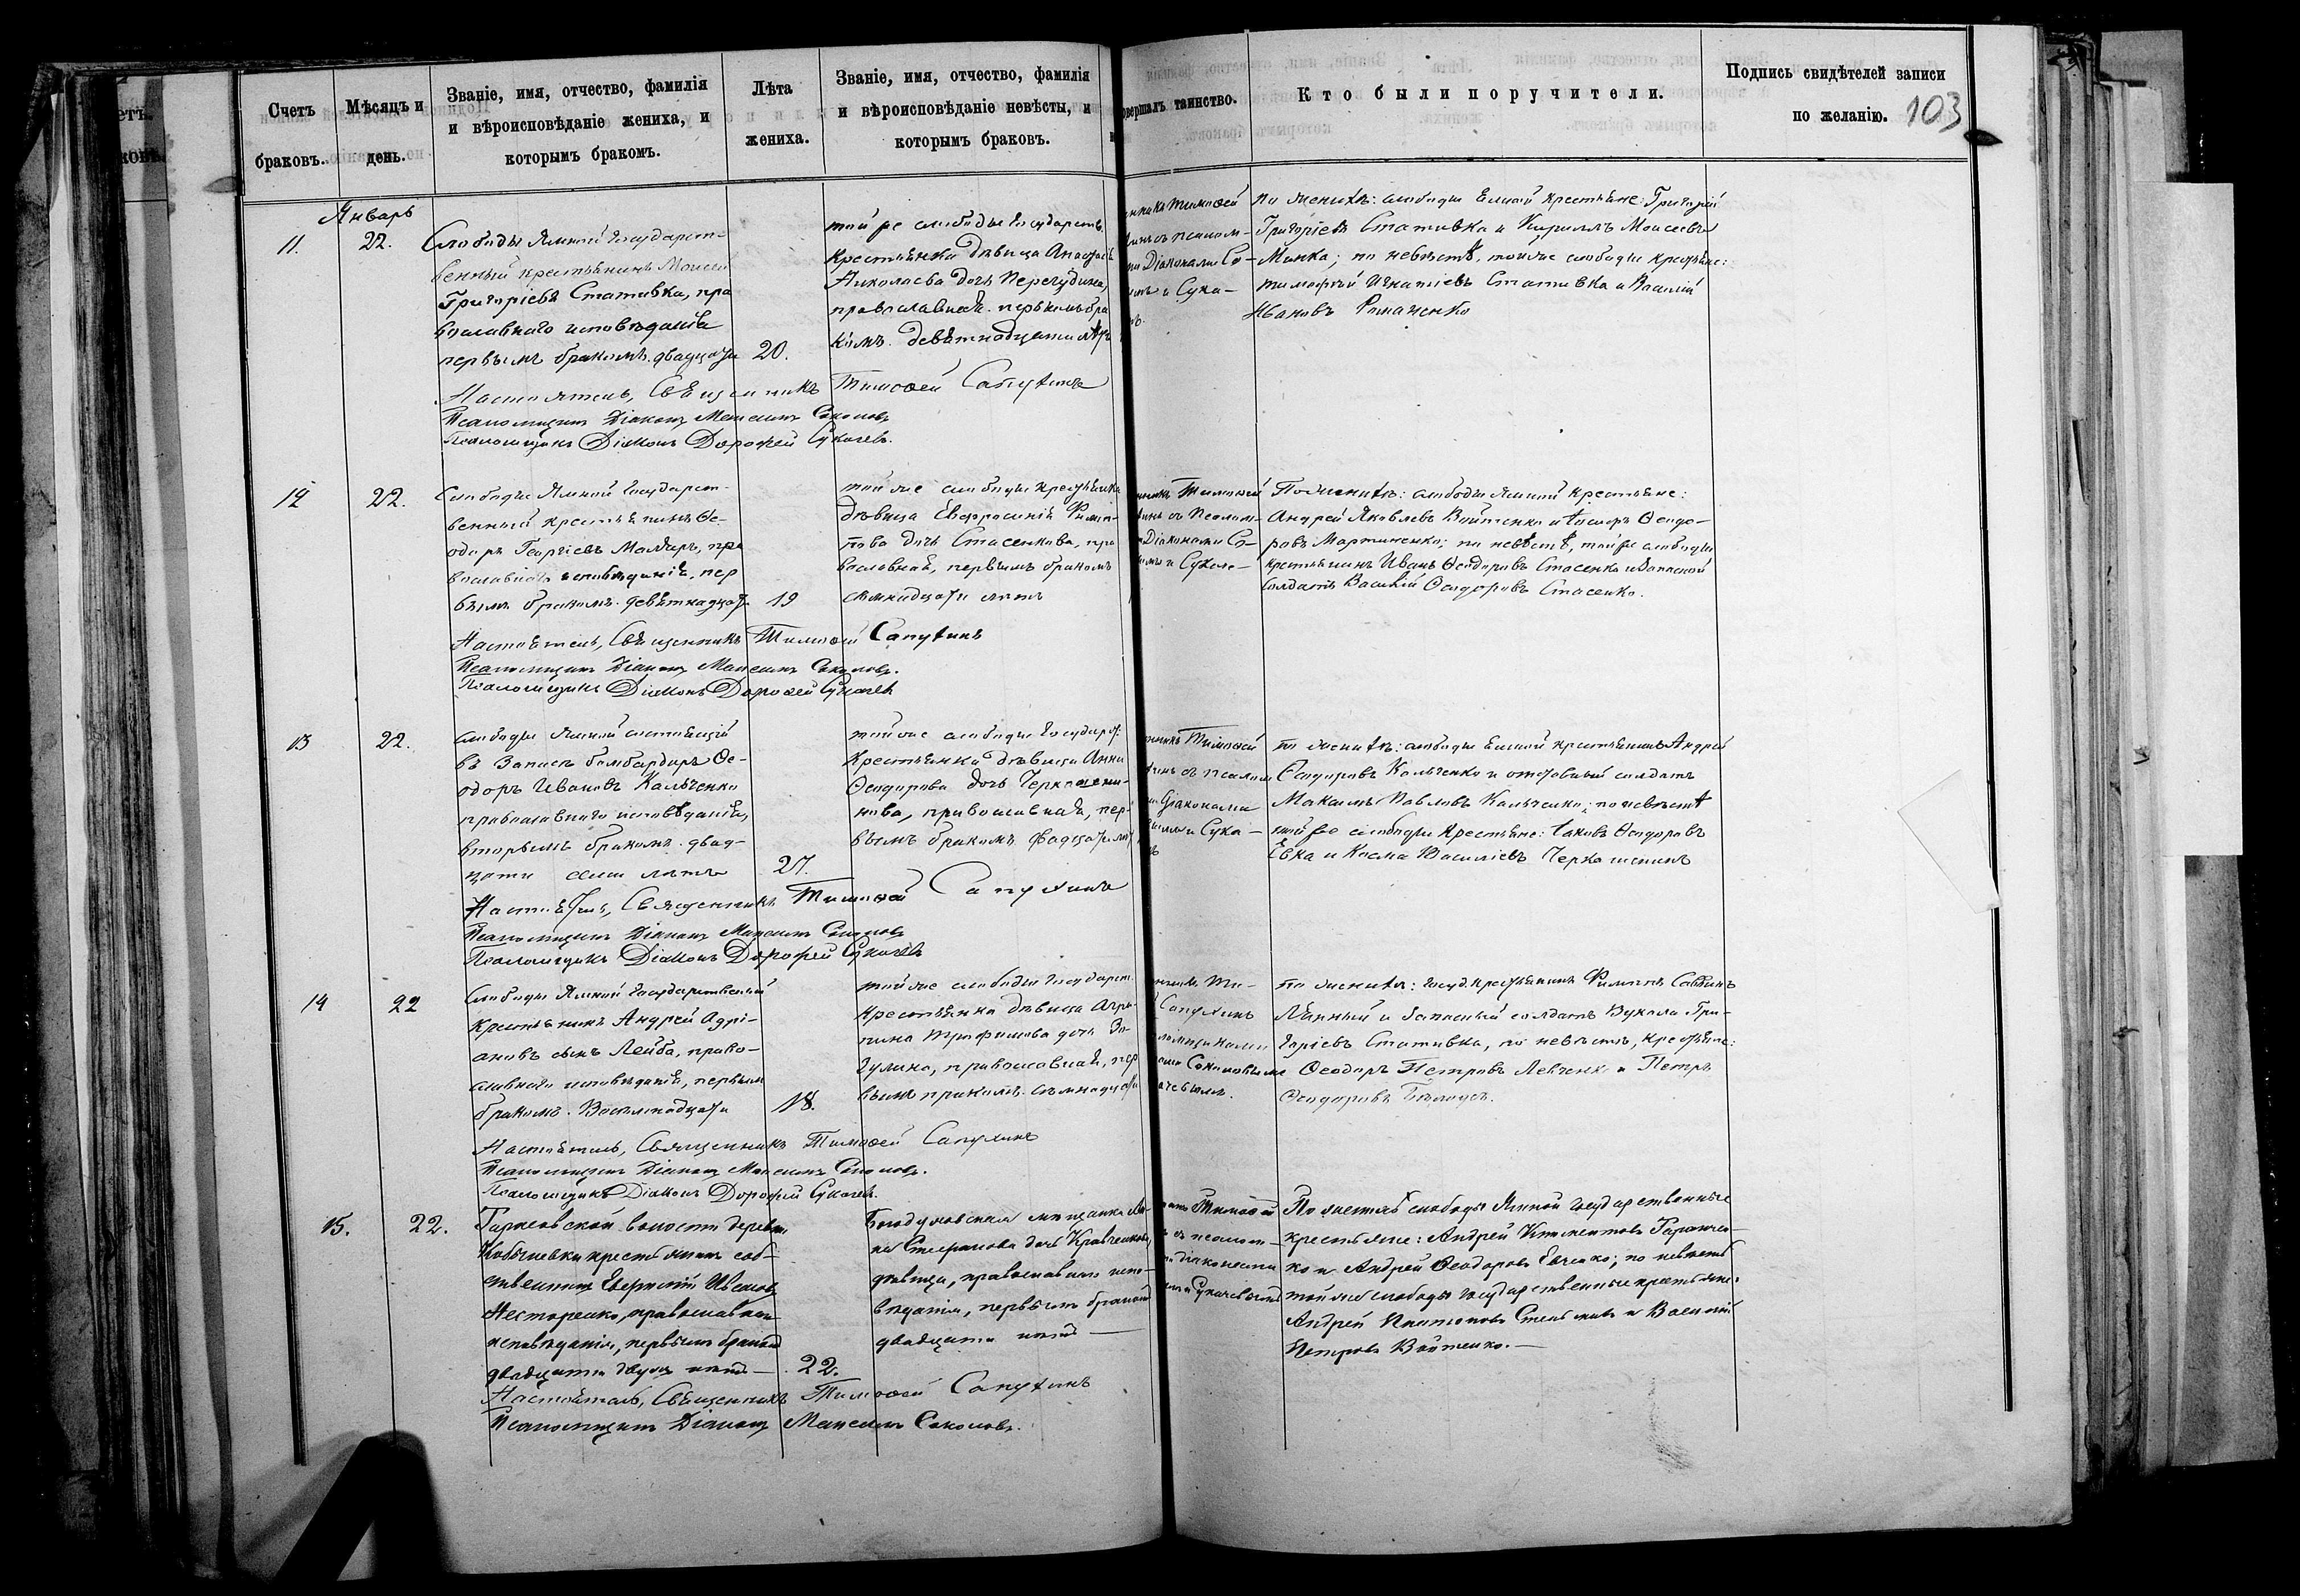 Счетъ
браковъ.
Мѣсяцъ и
день.
Званіе, имя, отчество, фамилія
и вѣроисповѣданіе жениха, и
которымъ бракомъ.
Лѣта
жениха.
Званіе, имя, отчество, фамилія
и вѣроисповѣданіе невѣсты, и
которымъ браковъ.
овершалъ таинство.
Кто были поручители.
Подпись свидѣтелей записи
по желанію.
103
Январь
11.
22.
Слободы Ямной Государст-
венный крестьянинъ Моисей
Григоріевъ Стативка, пра
вославнаго исповѣданія
первымъ бракомъ. двадцати
20.
той же слободы Государств.
крестьянка дѣвица
Николаева дочь
православная. первымъ бра
комъ. девятнадцати лѣтъ
Тимоѳей
псалом-
Діаконами Со-
и Сука-
по женихѣ: слободы Ямной крестьяне: Григорій
Григоріевъ Стативка и Кириллъ Моисеевъ
Минка; по невѣстѣ, той же слободы крестьяне:
Тимофей Игнатіевъ Стативка и Василій
Ивановъ
Настоятель, Священникъ Тимоѳей Сапухинъ
Псаломщикъ Діаконъ Максимъ Соколовъ
Псаломщикъ Діаконъ Дорофей Сукачевъ.
12
22.
Слободы Ямной Государст-
венный крестьянинъ Ѳе-
одоръ Георгіевъ Маляръ, пра
вославнаго исповѣданія, пер
вымъ бракомъ. девятнадцати
19
той же слободы крестьянка
дѣвица Евфросинія Филип-
пова дочь Стасенкова, пра
вославная, первымъ бракомъ
семнадцати лѣтъ
Тимоѳей
съ Псалом-
Діаконами Со-
и Сукаче-
По женихѣ: слободы Ямной крестьяне:
Андрей Яковлевъ Войтенко и Ѳеодо-
ровъ Мартиненко; по невѣстѣ, той же слободы
крестьянинъ Иванъ Ѳеодоровъ Стасенко и Запасной
Солдатъ Василій Ѳеодоровъ Стасенко.
Настоятель, Священникъ Тимоѳей Сапухинъ
Псаломщикъ Діаконъ Максимъ Соколовъ.
Псаломщикъ Діаконъ Дорофей Сукачевъ
13
22.
слободы Ямной состоящій
въ Запасѣ бомбардиръ Ѳе-
одоръ Ивановъ Кальченко
православнаго исповѣданія,
вторымъ бракомъ. двад-
цати семи лѣтъ
27.
той же слободы Государст.
Крестьянка дѣвица Анна
Ѳеодорова дочь Черкашени-
нова, православная, пер-
вымъ бракомъ. двадцати лѣтъ
Тимоѳей
съ псалом
Діаконами
и Сука-
по женихѣ: слободы Ямной крестьянинъ Андрей
Ѳеодоровъ Кальченко и отставный солдатъ
Максимъ Павловъ Кальченко; по невѣстѣ
той же слободы Крестьяне: Іаковъ Ѳеодоровъ
Евка и Косма Василіевъ Черкашенинъ
Настоятель, Священникъ Тимоѳей Сапухинъ
Псаломщикъ Діаконъ Максимъ Соколовъ
Псаломщикъ Діаконъ Дорофей Сукачевъ
14
22
Слободы Ямной Государственный
Крестьянинъ Андрей Адрі-
ановъ сынъ Лейба, право-
славнаго исповѣданія, первымъ
бракомъ. Восемнадцати
18.
той же слободы Государст.
крестьянка дѣвица Агри-
пина Трофимова дочь За-
гулина, православная, пер
вымъ бракомъ. семнадцати
Ти-
Сапухинъ
Соколовымъ
по женихѣ: Госуд. крестьянинъ Филиппъ Саввинъ
и Запасный солдатъ Вукола Гри-
горіевъ Стативка, по невѣстѣ, крестьяне:
Ѳеодоръ Петровъ Левченко и Петръ
Ѳеодоровъ
Настоятель, Священникъ Тимоѳей Сапухинъ
Псаломщикъ Діаконъ Максимъ Соколовъ.
Псаломщикъ Діаконъ Дорофей Сукачевъ.
15.
22.
волости деревни
крестьянинъ соб-
ственникъ Ивановъ
Нестеренко, православнаго
исповѣданія, первымъ бракомъ
двадцати двухъ лѣтъ —
22.
Богодуховская мѣщанка
Стефанова дочь Кравченкова,
дѣвица, православнаго испо-
вѣданія, первымъ бракомъ
двадцати лѣтъ —
Тимоѳей
съ псалом-
діаконами
и Сукачевымъ
По женихѣ слободы Ямной государственные
крестьяне: Андрей Климентовъ
и Андрей Ѳеодоровъ; по невѣстѣ
той же слободы государственные крестьяне:
Андрей Платоновъ и Василій
Петровъ Войтенко. —
Настоятель, Священникъ Тимоѳей Сапухинъ
Псаломщикъ Діаконъ Максимъ Соколовъ.